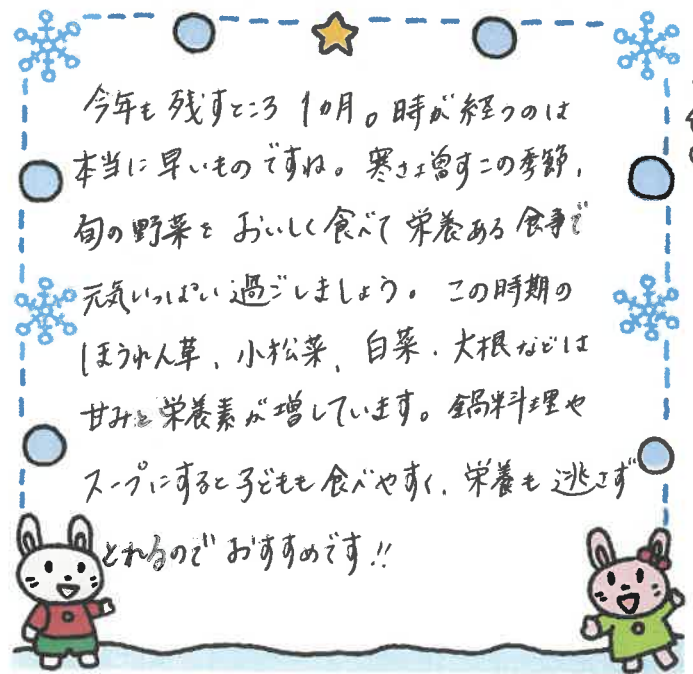 今年も残すところ1ヵ月。時が経つのは
本当に早いものですね。寒さ増すこの季節、
旬の野菜をおいしく食べて栄養ある食事で
元気いっぱい過ごしましょう。この時期の
ほうれん草、小松菜、白菜、大根などは
甘みと栄養素が増しています。鍋料理や
スープにすると子どもも食べやすく、栄養も逃さず
とれるのでおすすめです!!